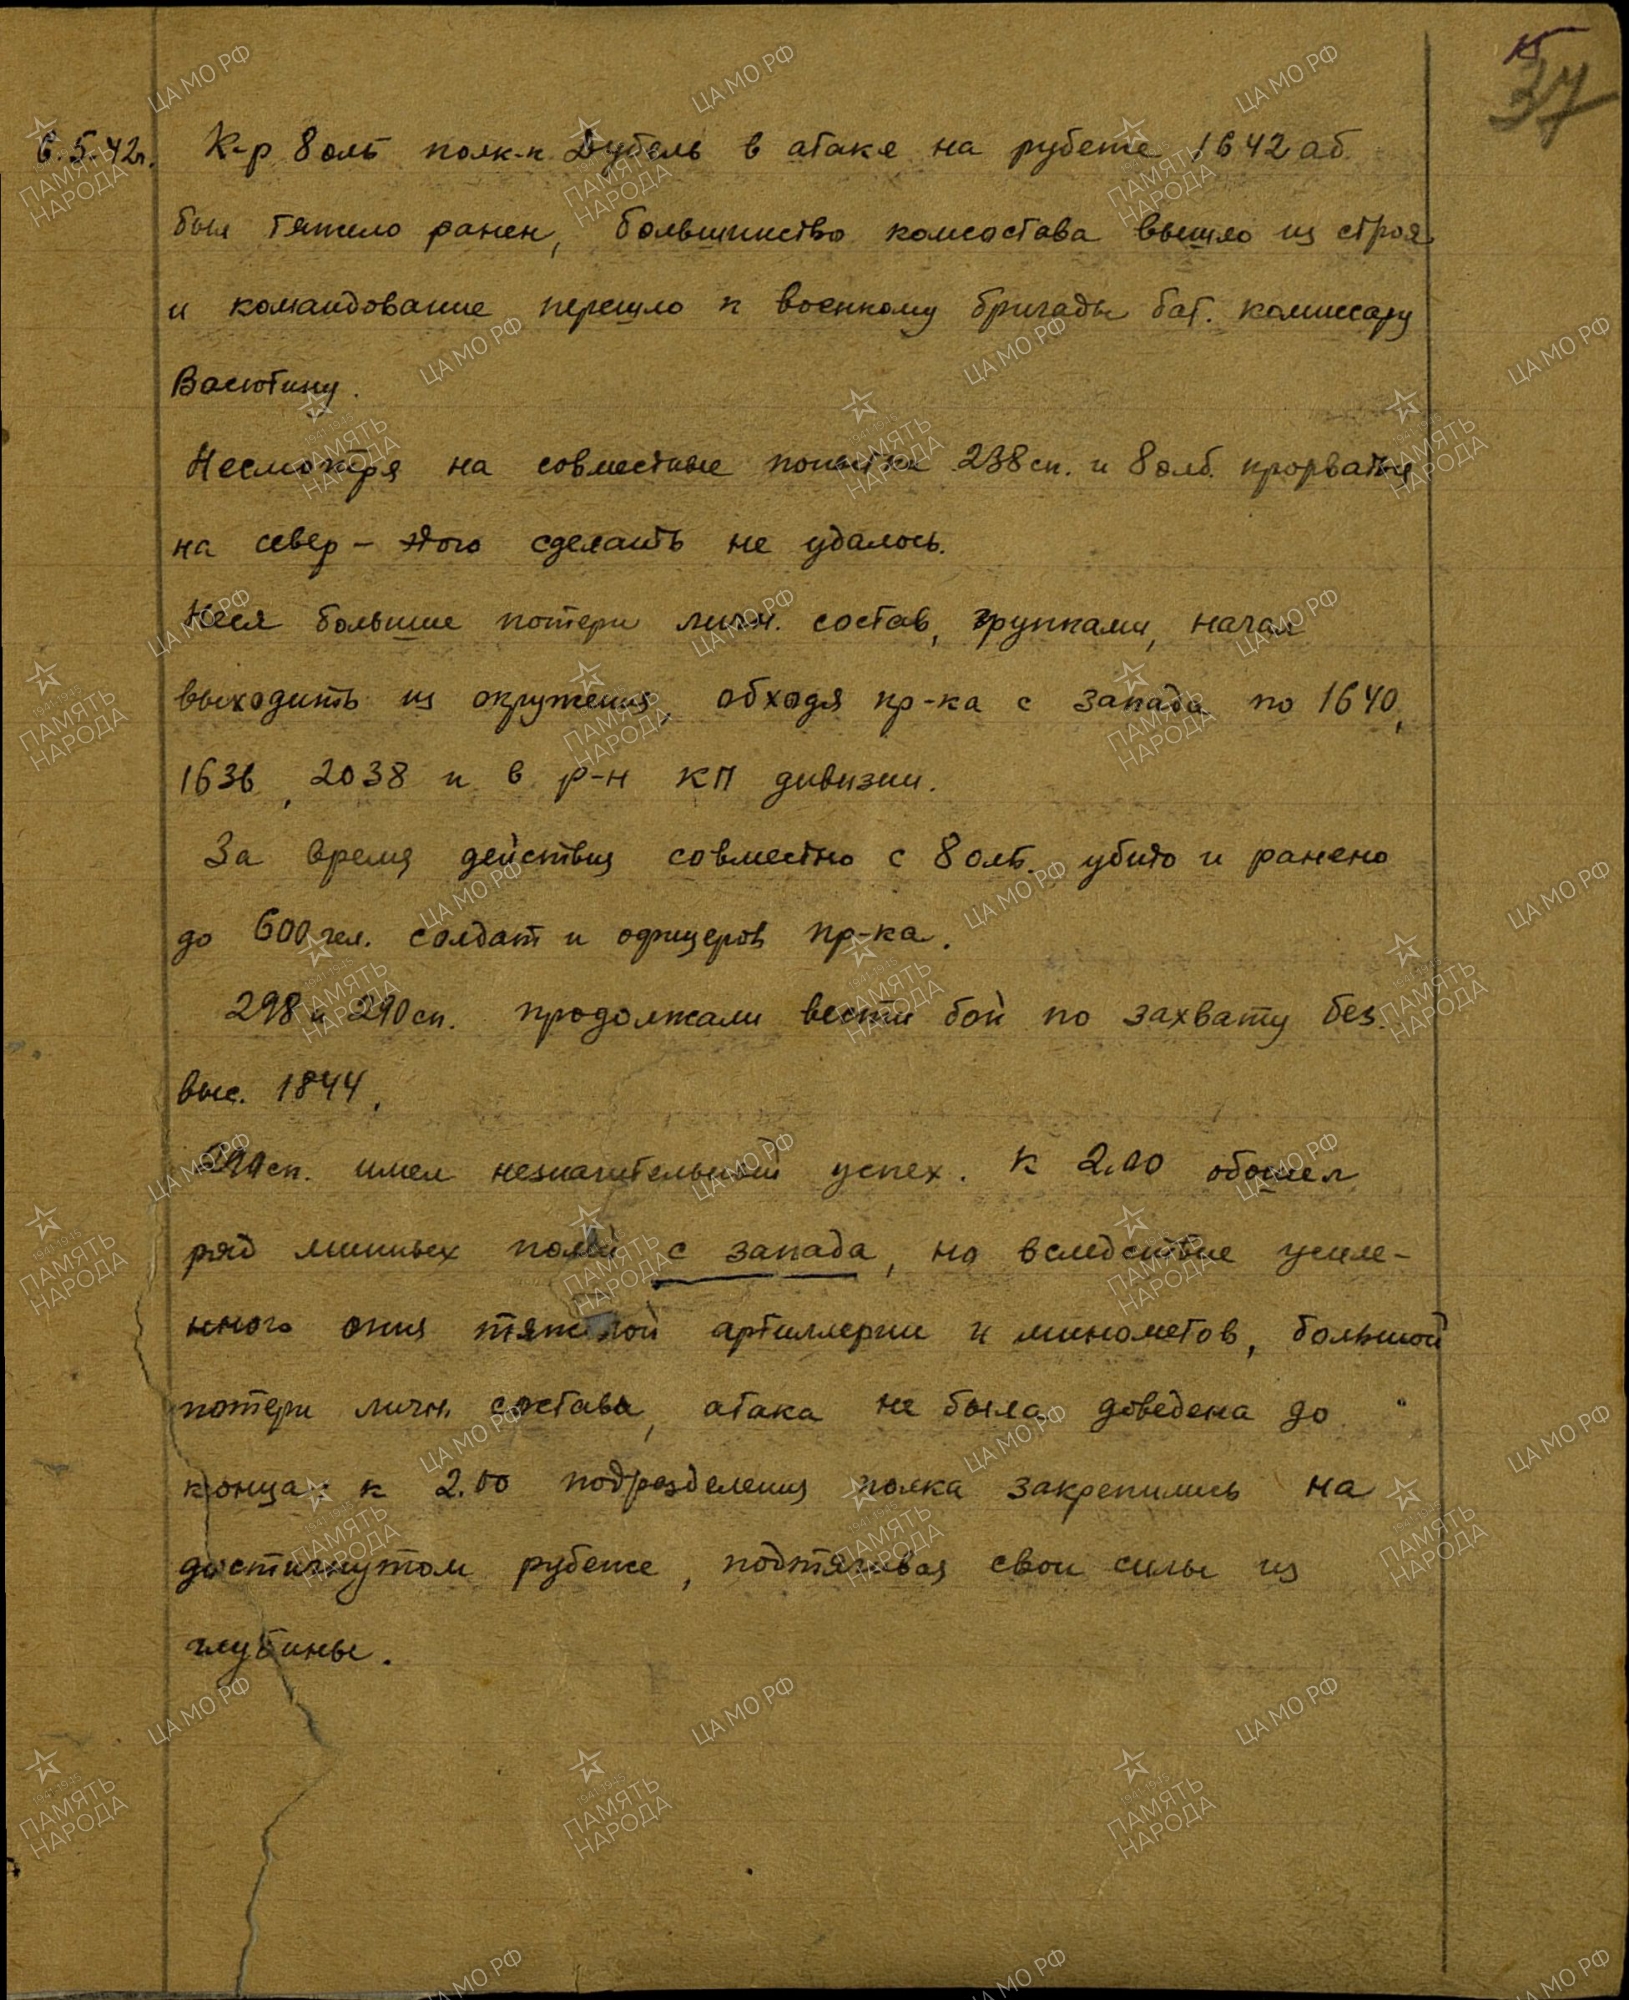 37
6.5.42г. К-р 8 олб полк-к Дубель в атаке на рубеже 1642 аб
был тяжело ранен, большинство комсостава вышло из строя
и командование перешло к военкому бригады бат. комиссару
Васютину.
Несмотря на совместные попытки 238 сп. и 8 олб. прорваться
на север – этого сделать не удалось.
Неся большие потери личн. состав, группами, начал
выходить из окружения, обходя пр-ка с запада по 1640,
1636, 2038 и в р-н КП дивизии.
За время действия совместно с 8 олб. убито и ранено
до 600 чел. солдат и офицеров пр-ка.
298 и 290 сп. продолжали вести бой по захвату без.
выс. 1844.
290 сп. имел незначительный успех. К 2.00 обошел
ряд минных полей с запада, но вследствие усиле-
нного огня тяжелой артиллерии и минометов, большой
потери личн. состава, атака не была доведена до
конца: к 2.00 подразделения полка закрепились на
достигнутом рубеже, подтягивая свои силы из
глубины.
ЦА МО РФ
ПАМЯТЬ НАРОДА
1941-1945